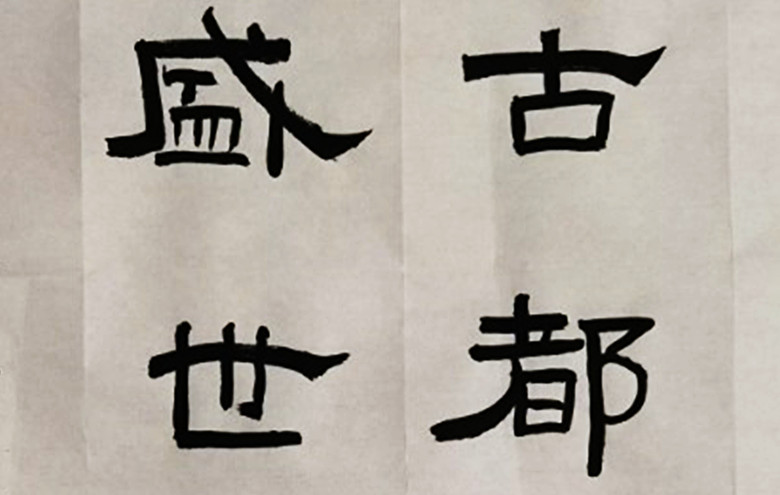 古都
盛世